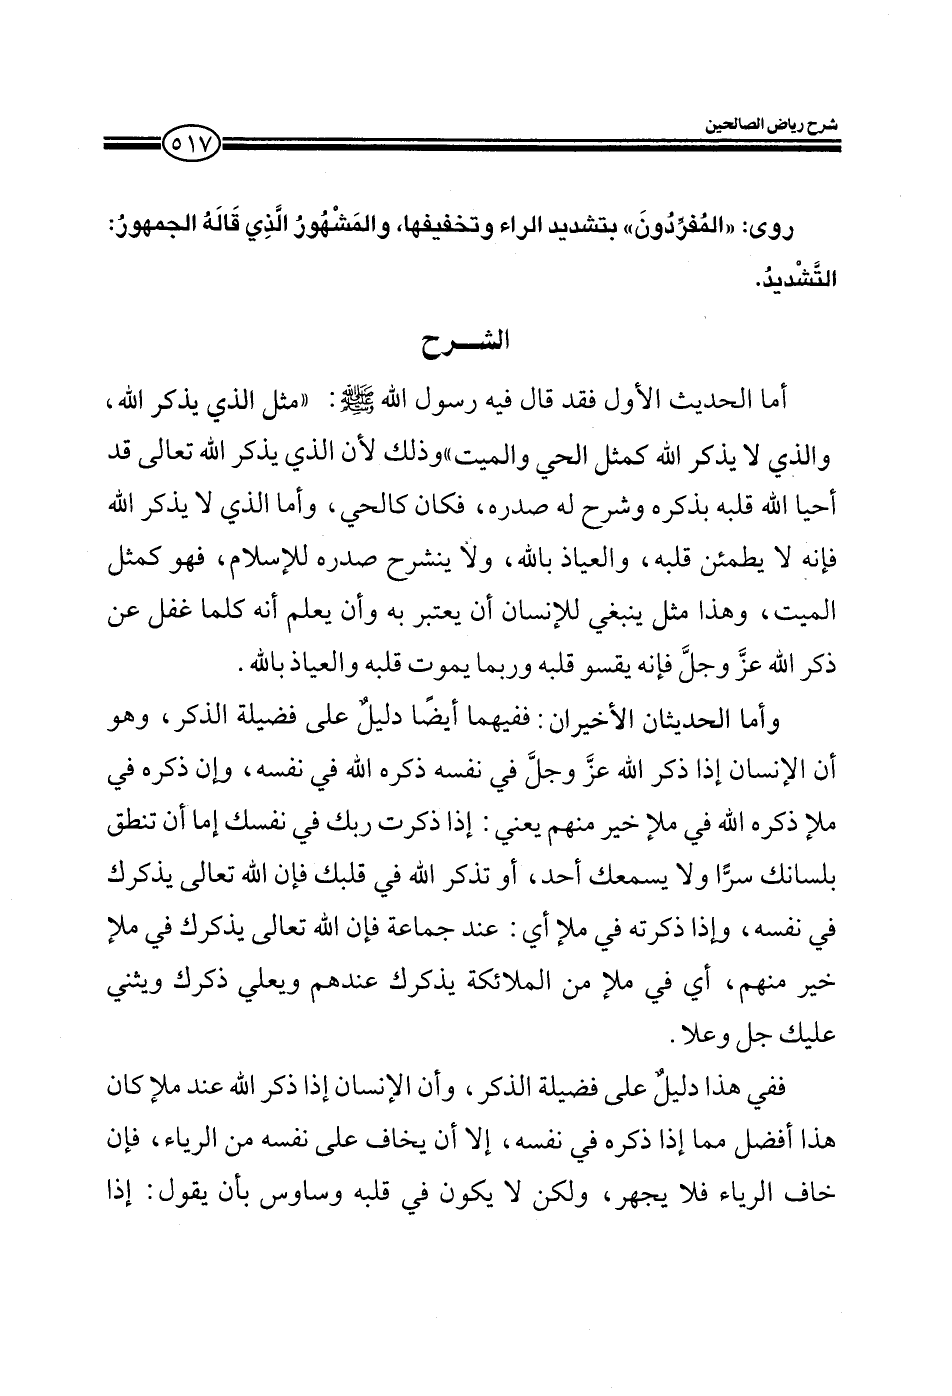 شرح رياض الصالحين
٥١٧
روى: «المُفَرِّدُونَ» بتشديد الراء وتخفيفها، والمَشْهُورُ الَّذِي قَالَهُ الجمهورُ:
التَّشْديدُ.
الشـــرح
أما الحديث الأول فقد قال فيه رسول الله ﷺ: «مثل الذي يذكر الله،
والذي لا يذكر الله كمثل الحي والميت» وذلك لأن الذي يذكر الله تعالى قد
أحيا الله قلبه بذكره وشرح له صدره، فكان كالحي، وأما الذي لا يذكر الله
فإنه لا يطمئن قلبه، والعياذ بالله، ولا ينشرح صدره للإسلام، فهو كمثل
الميت، وهذا مثل ينبغي للإنسان أن يعتبر به وأن يعلم أنه كلما غفل عن
ذكر الله عزَّ وجلَّ فإنه يقسو قلبه وربما يموت قلبه والعياذ بالله.
وأما الحديثان الأخيران: ففيهما أيضًا دليلٌ على فضيلة الذكر، وهو
أن الإنسان إذا ذكر الله عزَّ وجلَّ في نفسه ذكره الله في نفسه، وإن ذكره في
ملإ ذكره الله في ملإ خير منهم يعني: إذا ذكرت ربك في نفسك إما أن تنطق
بلسانك سرًّا ولا يسمعك أحد، أو تذكر الله في قلبك فإن الله تعالى يذكرك
في نفسه، وإذا ذكرته في ملإ أي: عند جماعة فإن الله تعالى يذكرك في ملإ
خير منهم، أي في ملإ من الملائكة يذكرك عندهم ويعلي ذكرك ويثني
عليك جل وعلا.
ففي هذا دليلٌ على فضيلة الذكر، وأن الإنسان إذا ذكر الله عند ملإ كان
هذا أفضل مما إذا ذكره في نفسه، إلا أن يخاف على نفسه من الرياء، فإن
خاف الرياء فلا يجهر، ولكن لا يكون في قلبه وساوس بأن يقول: إذا